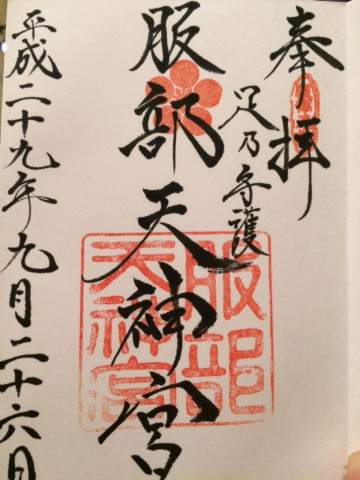 奉拝
足乃守護
服部天神宮
服部
天神宮
平成二十九年九月二十六日